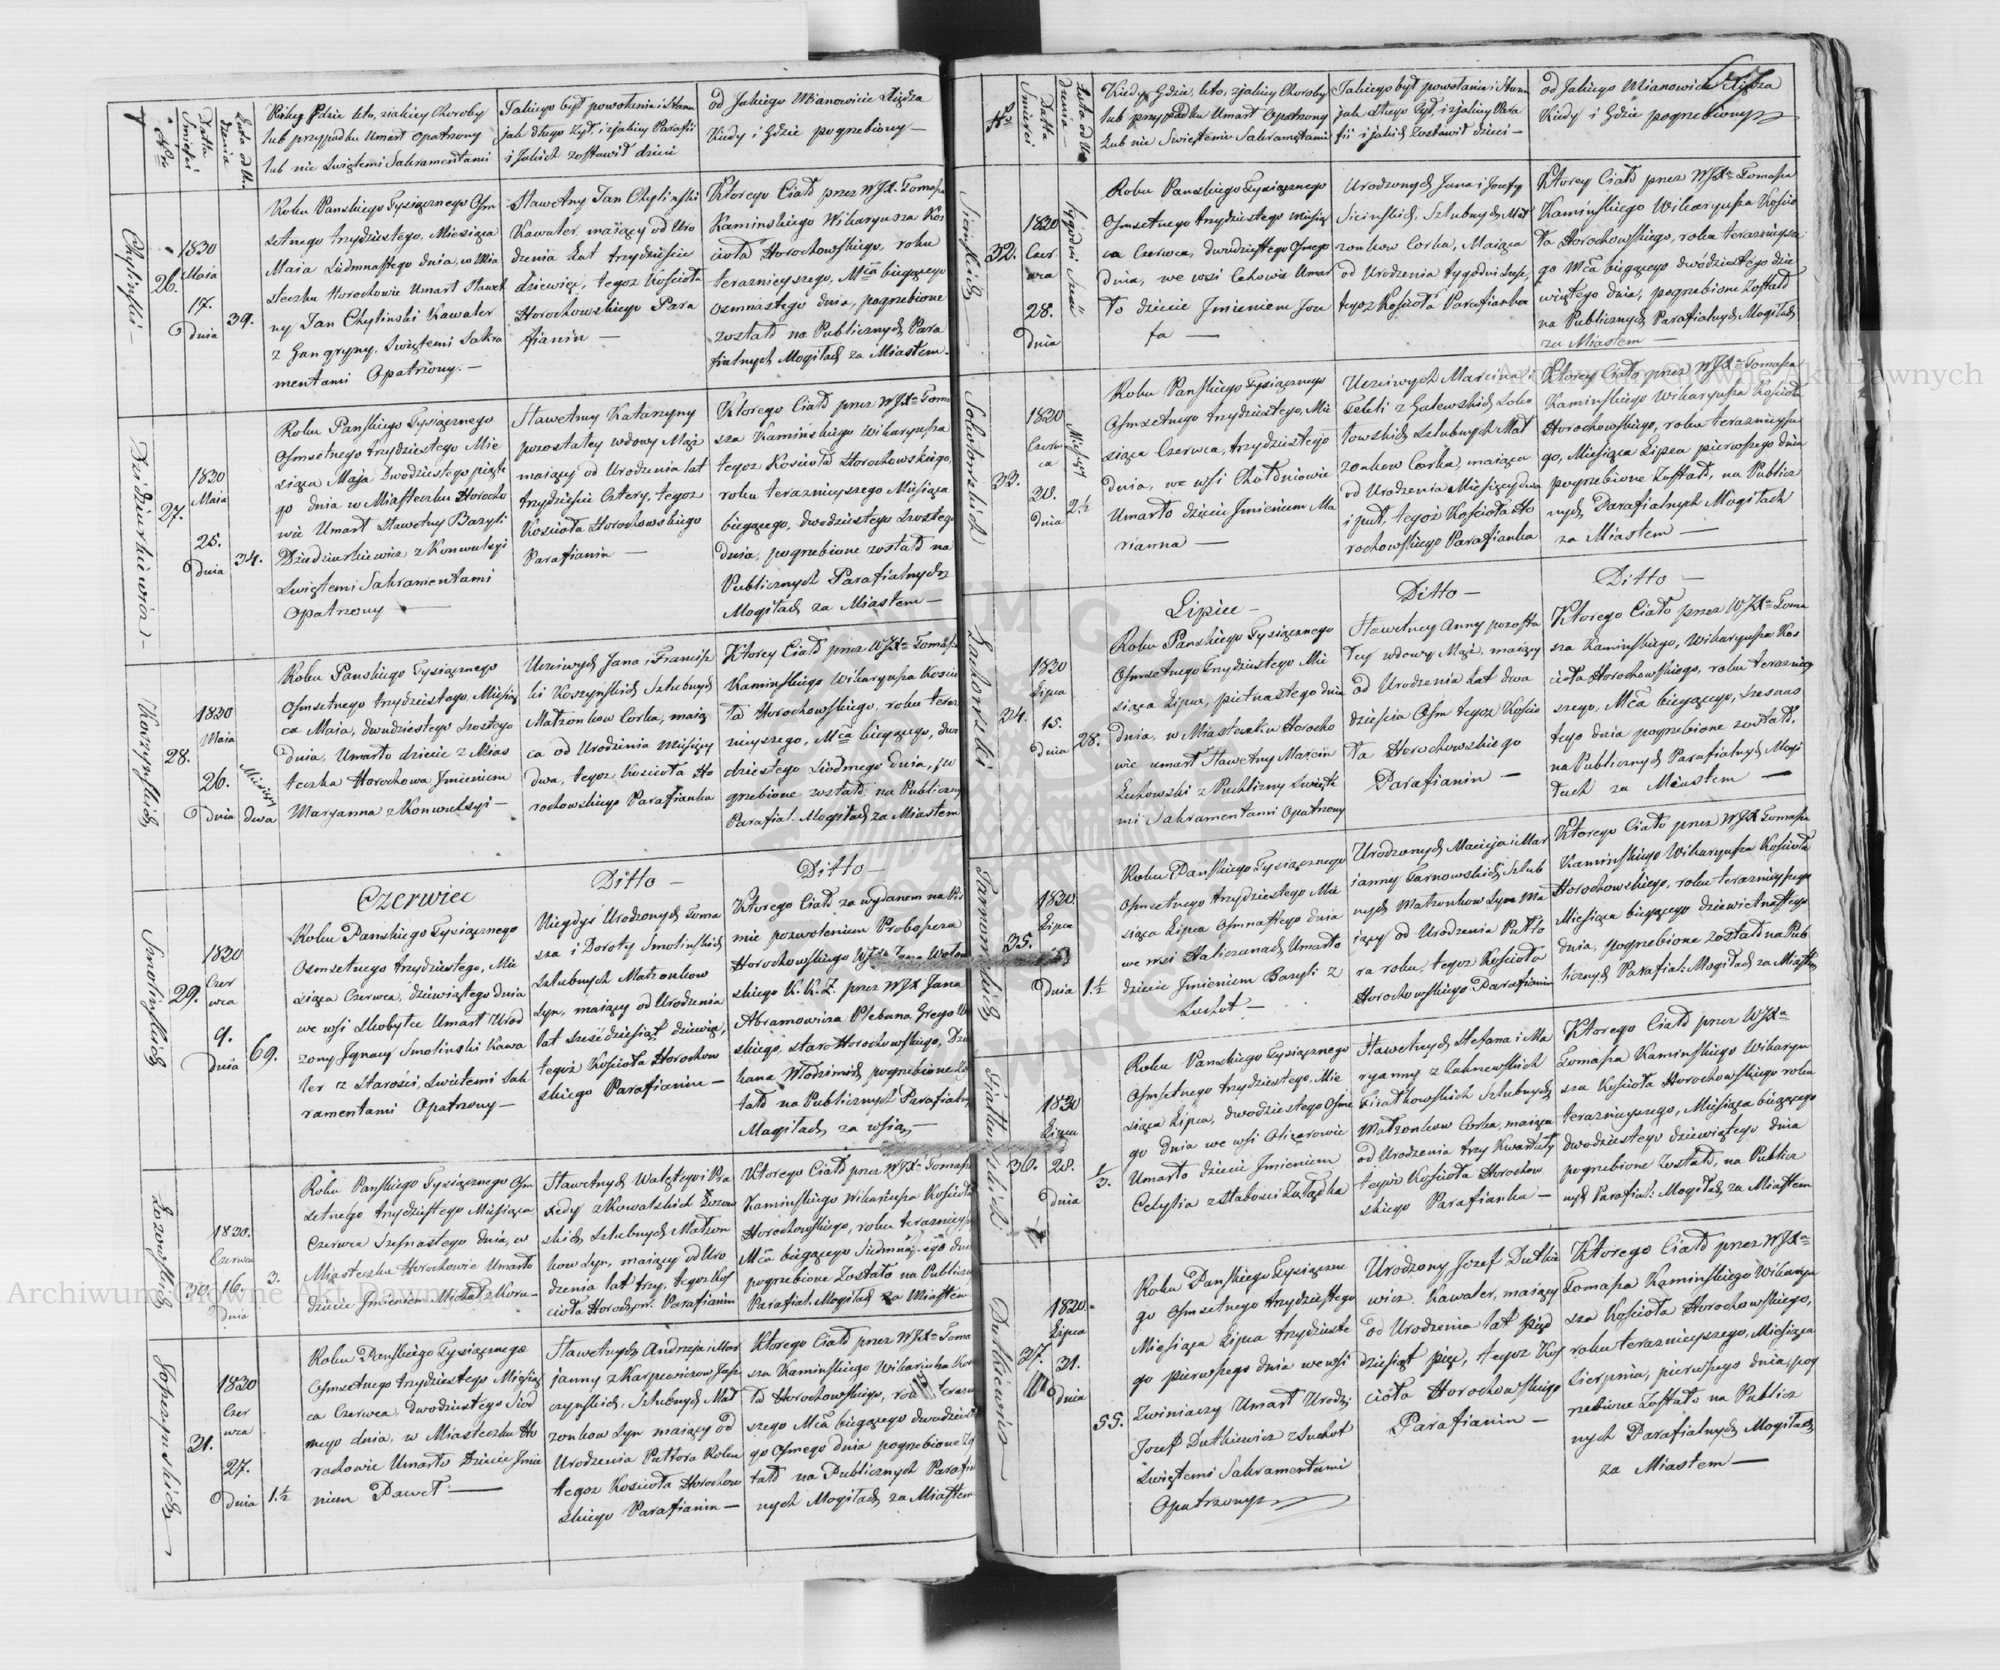 Nro
Datta
Śmierci
Lata od U.
dzenia
Kiedy Gdzie kto, z jakiey Choroby
lub przypadku Umarł Opatrzony
lub nie Swiętemi Sakramentami
Jakiego był powołania i Stanu
jak długo Żył, i z jakiey Parafii
i Jakich zostawił dzieci
od Jakiego Mianowicie Xiędza
Kiedy i Gdzie pogrzebiony —
Chylinski —
26.
1830
Maia
17.
Dnia
39.
Roku Panskiego Tysiącznego Osm
setnego trzydziestego, Miesiąca
Maia Siedmnastego dnia, w Mia
steczku Horochowie Umarł Sławet
ny Jan Chylinski Kawaler
z Gangryny, Swiętemi Sakra
mentami Opatrzony. —
Sławetny Jan Chylinski
Kawaler, maiący od Uro
dzenia Lat trzydzieście
dziewięć, tegoż Kościoła
Horochowskiego Para
fianin —
Ktorego Ciało przez WJX. Tomasza
Kaminskiego Wikaryusza Koś
cioła Horochowskiego, roku
teraznieyszego, Mca bieżącego
osmnastego dnia, pogrzebione
zostało na Publicznych Para
fialnych Mogiłach za Miastem. —
Dzidziurkiewicz —
27.
1830
Maia
25.
Dnia
34.
Roku Panskiego Tysiącznego
Osmsetnego trzydziestego Mie
siąca Maja Dwodziestego piąte
go dnia w Miasteczku Horocho
wie Umarł Sławetny Bazyli
Dziedziurkiewicz z Konwulsyi
Swiętemi Sakramentami
Opatrzony —
Sławetney Katarzyny
pozostałey wdowy Mąż
maiący od Urodzenia lat
trzydzieście Cztery, tegoż
Kościoła Horochowskiego
Parafianin —
Ktorego Ciało przez WJXa Toma
sza Kamińskiego Wikaryusza
tegoż Kościoła Horochowskiego,
roku teraznieyszego Miesiąca
bieżącego, dwodziestego szostego
dnia, pogrzebione zostało na
Publicznych Parafialnych
Mogiłach za Miastem —
Koszynskich
28.
1830
Maia
26.
Dnia
Miesięcy
dwa
Roku Panskiego Tysiącznego
Osmsetnego trzydziestego, Miesią
ca Maia, dwudziestego szostego
dnia, Umarło dziecie z Mias
teczka Horochowa Jmieniem
Maryanna z Konwulsyi —
Uczciwych Jana i Francisz
ki Koszyńskich Szlubnych
Małzonkow Corka, maią
ca od Urodzenia miesięcy
dwa, tegoż Kościoła Ho
rochowskiego Parafianka
Ktorey Ciało przez WJXa Tomasza
Kaminskiego Wikaryusza Kościo
ła Horochowskiego, roku teraz
nieyszego, Mca bieżącego, dwu
dziestego Siodmego dnia, po
grzebione zostało, na Publiczny
Parafial. Mogiłach za Miastem
Czerwiec
Ditto —
Ditto —
Smolinskich
29.
1830
Czer
wca
9.
Dnia
69.
Roku Panskiego Tysiącznego
Osmsetnego trzydziestego, Mie
siąca Czerwca, dziewiątego dnia
we wsi Skobyłce Umarł Urod
zony Jgnacy Smolinski Kawa
ler z Starości, Swiętemi Sak
ramentami Opatrzony —
Niegdyś Urodzonych Toma
sza i Doroty Smolinskich
Szlubnych Małzonkow
Syn, maiący od Urodzenia
lat sześćdziesiąt dziewięć,
tegoż Kościoła Horochow
skiego Parafianin —
Ktorego Ciało za wydanem na Piś
mie pozwoleniem Proboszcza
Horochowskiego
skiego K. K. Ł. przez WJX Jana
Abramowicza Plebana
skiego, staro Horochowskiego,
pogrzebione
tało na Publicznych Parafialny
Mogiłach za wsią, —
Łozowskich
30.
1830.
Czerwca
16.
Dnia
3.
Roku Panskiego Tysiącznego Osm
setnego trzydziestego Miesiąca
Czerwca Szesnastego dnia, w
Miasteczku Horochowie Umarło
dziecie Jmieniem Michał z Koru —
Sławetnych Walętego i
z Kowalskich Łozow
skich, Szlubnych Małzon
kow Syn, maiący od Uro
dzenia lat trzy, tegoż Koś
cioła Horochow. Parafianin
Ktorego Ciało przez WJXa Tomasza
Kaminskiego Wikariusza Kościoła
Horochowskiego, roku teraznieyszego
Mca bieżącego Siedmnastego dnia
pogrzebione Zostało na Publiczn
Parafial. Mogiłach za Miastem
Jopczynskich
31.
1830
Czer
wca
27.
Dnia
1.½
Roku Panskiego Tysiącznego
Osmsetnego trzydziestego Miesią
ca Czerwca, Dwodziestego Siod
mego dnia, w Miasteczku Ho
rochowie Umarło Dziecie Jmie
niem Paweł —
Sławetnych Andrzeja i Mar
janny z Karpowiczow
czynskich, Szlubnych Mał
zonkow Syn maiący od
Urodzenia Pułtora Roku
tegoż Kościoła Horochow
skiego Parafianin —
Ktorego Ciało przez WJXa Toma
sza Kaminskiego Wikariusza Koś
ła Horochowskiego, teraznie
szego Mca bieżącego dwadzieste
go Osmego dnia pogrzebione Zos
tało na Publicznych Parafial
nych Mogiłach za Miastem
Nro
Datta
Śmierci
Lata od Uro
dzenia
Kiedy, Gdzie, kto, z jakiey Choroby
lub przypadku Umarł Opatrzony
Lub nie Swiętemi Sakramętami
Jakiego był powołania i Stanu
jak długo Żył, i z jakiey Para
fii i jakich Zostawił dzieci —
od Jakiego Mianowicie Xiędza
Kiedy i Gdzie pogrzebiony
Sicinskich
32.
1830
Czer
wca
28.
Dnia
tygodni Sześć
Roku Panskiego Tysiącznego
Osmsetnego trzydziestego miesią
ca Czerwca, dwudziestego Osmego
dnia, we wsi Cehowie Umar
ło dziecie Jmieniem Joze
fa —
Urodzonych Jana i Jozefy
Sicinskich, Szlubnych Mał
zonkow Corka, Maiąca
od Urodzenia tygodni Sześć,
tegoż Kościoła Parafianka
Ktorey Ciało przez WJXa Tomasza
Kamińskiego Wikaryusza Kościo
ła Horochowskiego, roku teraznieysze
go Mca bieżącego dwódziestego dzie
wiątego dnia, pogrzebione Zostało
na Publicznych Parafialnych Mogiłach
za Miastem —
Sokołowskich
33.
1830
Czerw
ca
30.
Dnia
Miesięcy
2½
Roku Panskiego Tysiącznego
Osmsetnego trzydziestego, Mie
siąca Czerwca, trzydziestego
dnia, we wsi Chołoniowie
Umarło dziecie Jmieniem Ma
rianna —
Uczciwych Marcina i
Tekli z Galewskich Soko
łowskich Szlubnych Mał
zonkow Corka, maiąca
od Urodzenia Miesięcy dwa
i puł, tegoż Kościoła Ho
rochowskiego Parafianka
Ktorey Ciało przez WJXa Tomasza
Kaminskiego Wikaryusza Kościoła
Horochowskiego, roku teraznieysze
go, Miesiąca Lipca pierwszego dnia
pogrzebione Zostało, na Publicz
nych Parafialnych Mogiłach
za Miastem —
Lipiec —
Ditto —
Ditto —
Łuchowski
34.
1830
Lipca
15.
Dnia
28.
Roku Panskiego Tysiącznego
Osmsetnego Trzydziestego Mie
siąca Lipca, pietnastego dnia
Dnia, w Miasteczku Horocho
wie umarł Sławetny Marcin
Łuchowski z Puchliny Swięte
mi Sakramentami Opatrzony
Sławetney Anny pozosta
łey wdowy Mąż, maiący
od Urodzenia Lat dwa
dzieścia Osm tegoż Kościo
ła Horochowskiego
Parafianin —
Ktorego Ciało przez WJXa Toma
sza Kaminskiego, Wikaryusza Koś
cioła Horochowskiego, roku teraznie
szego, Mca bieżącego, szesnas
tego dnia pogrzebione zostało,
na Publicznych Parafialnych Mogi
łach za Miastem —
Tarnowskich
35.
1830.
Lipca
Dnia
1.½
Roku Panskiego Tysiącznego
Osmsetnego trzydziestego Mie
siąca Lipca Osmnastego dnia
we wsi Haliczanach Umarło
dziecie Jmieniem Bazyli z
Suchot —
Urodzonych Macieja i Mar
janny Tarnowskich Szlub
nych Małzonkow Syn Ma
iący od Urodzenia Pułto
ra roku, tegoż Kościoła
Horochowskiego Parafianin
Ktorego Ciało przez WJX Tomasza
Kamińskiego Wikaryusza Kościoła
Horochowskiego, roku teraznieyszego
Miesiąca bieżącego dziewietnastego
dnia, pogrzebione Zostało na Pub
licznych Parafial: Mogiłach za Miastem
Fiałkowskich
36.
1830
Lipca
28.
Dnia
Roku Panskiego Tysiącznego
Osmsetnego trzydziestego, Mie
siąca Lipca, dwodziestego Osme
go dnia we wsi Olizarowie
Umarło dziecie Jmieniem
Celestia z słabosci Zołądka
Sławetnych Stefana i Ma
ryanny z Fiałkowskich Szlubnych
Małzonkow Corka, maiąca
od Urodzenia trzy Kwartały
tegoż Kościoła Horochow
skiego Parafianka —
Ktorego Ciało przez WJXa
Tomasza Kaminskiego Wikaryu
sza Kościoła Horochowskiego roku
teraznieyszego, Miesiąca bieżącego
dwodziestego dziewiątego dnia
pogrzebione Zostało, na Publicz
nych Parafial: Mogiłach za Miastem
Dutkiewicz
37.
1830.
Lipca
31.
Dnia
55.
Roku Panskiego Tysiączne
go Osmsetnego trzydziestego
Miesiąca Lipca trzydzieste
go pierwszego dnia we wsi
Zwiniaczy Umarł Urodz:
Jozef Dutkiewicz z Suchot
Swiętemi Sakramentami
Opatrzony
Urodzony Jozef Dutkie
wicz Kawaler, maiący
od Urodzenia lat pięć
dziesiąt pięć, tegoż Koś
cioła Horochowskiego
Parafianin —
Ktorego Ciało przez WJXa
Tomasza Kaminskiego Wikaryu
sza Kościoła Horochowskiego,
roku teraznieyszego, Miesiąca
Sierpnia, pierwszego dnia, pog
rzebione Zostało na Publicz
nych Parafialnych Mogiłach
za Miastem —
Archiwum Główne Akt Dawnych
Archiwum Główne Akt Dawnych